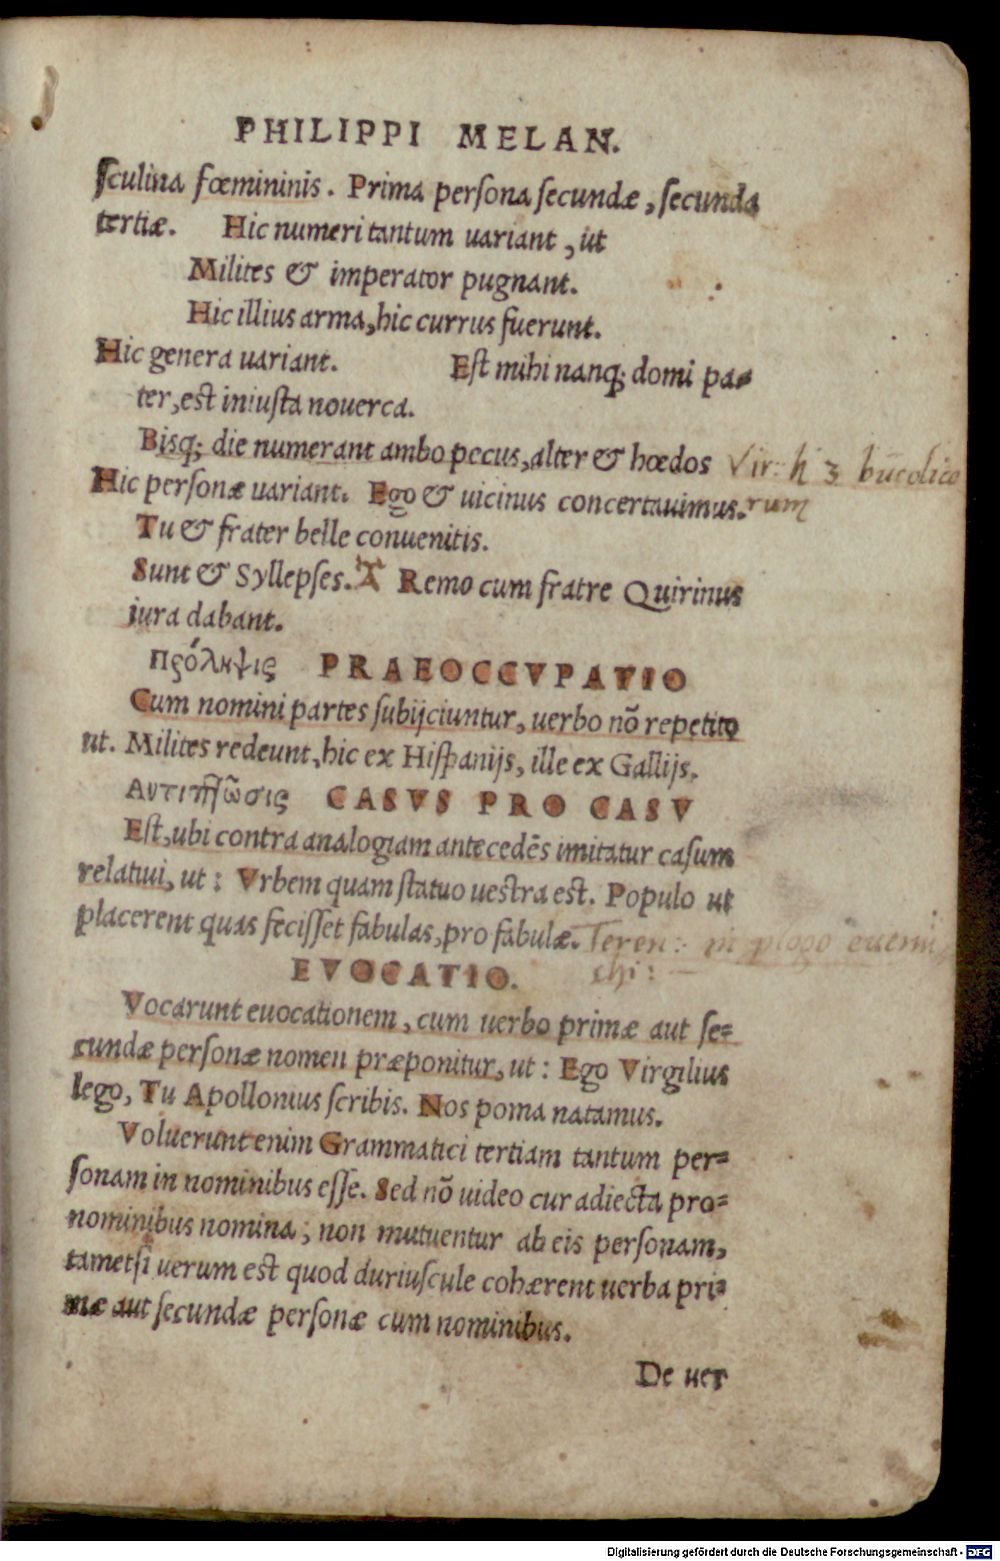 PHILIPPI MELAN.
sculina fœmininis. Prima persona secundæ, secunda
tertiæ. Hic numeri tantum uariant, ut
Milites & imperator pugnant.
Hic illius arma, hic currus fuerunt.
Hic genera uariant. Est mihi nanq; domi pa-
ter, est iniusta nouerca.
Bisq; die numerant ambo pecus, alter & hœdos Vir: h 3 bucolico
Hic personæ uariant. Ego & uicinus concertauimus. rum
Tu & frater belle conuenitis.
Sunt & Syllepses. Remo cum fratre Quirinus
iura dabant.
Πρόληψις PRAEOCCVPATIO
Cum nomini partes subijciuntur, uerbo nõ repetito
ut. Milites redeunt, hic ex Hispanijs, ille ex Gallijs.
Αντιπτῶσις CASVS PRO CASV
Est, ubi contra analogiam antecedẽs imitatur casum
relatiui, ut: Vrbem quam statuo uestra est. Populo ut
placerent quas fecisset fabulas, pro fabulæ. Teren: in plogo euenu
chi:
EVOCATIO.
Vocarunt euocationem, cum uerbo primæ aut se=
cundæ personæ nomen præponitur, ut: Ego Virgilius
lego, Tu Apollonius scribis. Nos poma natamus.
Voluerunt enim Grammatici tertiam tantum per=
sonam in nominibus esse. Sed nõ uideo cur adiecta pro=
nominibus nomina; non mutuentur ab eis personam,
tametsi uerum est quod duriuscule cohærent uerba pri=
mæ aut secundæ personæ cum nominibus.
De uer
Digitalisierung gefördert durch die Deutsche Forschungsgemeinschaft - DFG